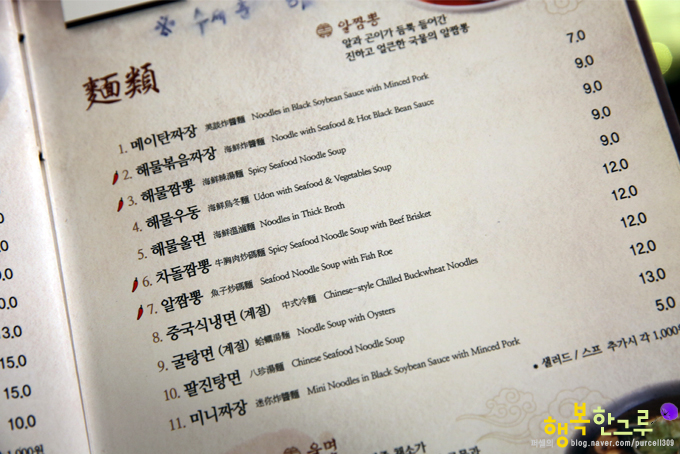 ※ 수
알짬뽕
알과 곤이가 듬뿍 들어간
진하고 얼큰한 국물의 알짬뽕
麵類
1. 메이탄짜장 美談炸醬麵 Noodles in Black Soybean Sauce with Minced Pork 7.0
2. 해물볶음짜장 海鮮炸醬麵 Noodle with Seafood & Hot Black Bean Sauce 9.0
3. 해물짬뽕 海鮮辣湯麵 Spicy Seafood Noodle Soup 9.0
4. 해물우동 海鮮烏冬麵 Udon with Seafood & Vegetables Soup 9.0
5. 해물울면 海鮮溫滷麵 Noodles in Thick Broth 9.0
6. 차돌짬뽕 牛胸肉炒碼麵 Spicy Seafood Noodle Soup with Beef Brisket 12.0
7. 알짬뽕 魚子炒碼麵 Seafood Noodle Soup with Fish Roe 12.0
8. 중국식냉면 (계절) 中式冷麵 Chinese-style Chilled Buckwheat Noodles 12.0
9. 굴탕면 (계절) 蛤蠣湯麵 Noodle Soup with Oysters 12.0
10. 팔진탕면 八珍湯麵 Chinese Seafood Noodle Soup 13.0
11. 미니짜장 迷你炸醬麵 Mini Noodles in Black Soybean Sauce with Minced Pork 5.0
• 샐러드 / 스프 추가시 각 1,000원
울면
채소가
0
.0
0.0
2.0
13.0
15.0
13.0
10.0
1,000원
행복한그루
blog.naver.com/purcell309